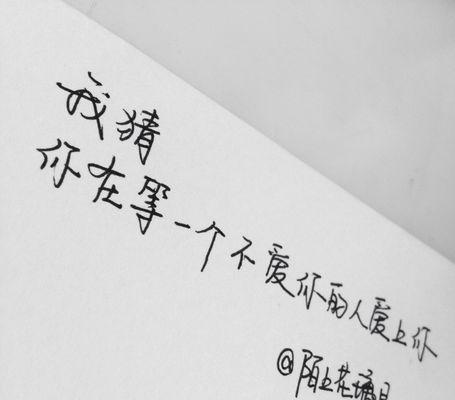 我猜
你在等一个不爱你的人爱上你
@陌上花